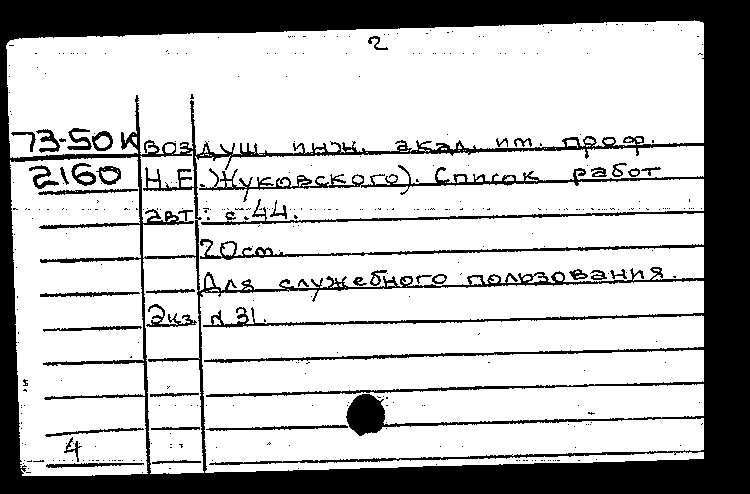 2
73-50К воздуш. инж. акад. им. проф.
2160 Н.Е. Жуковского). Список работ
авт.: с. 44.
20 см.
Для служебного пользования.
Экз. № 31.
4